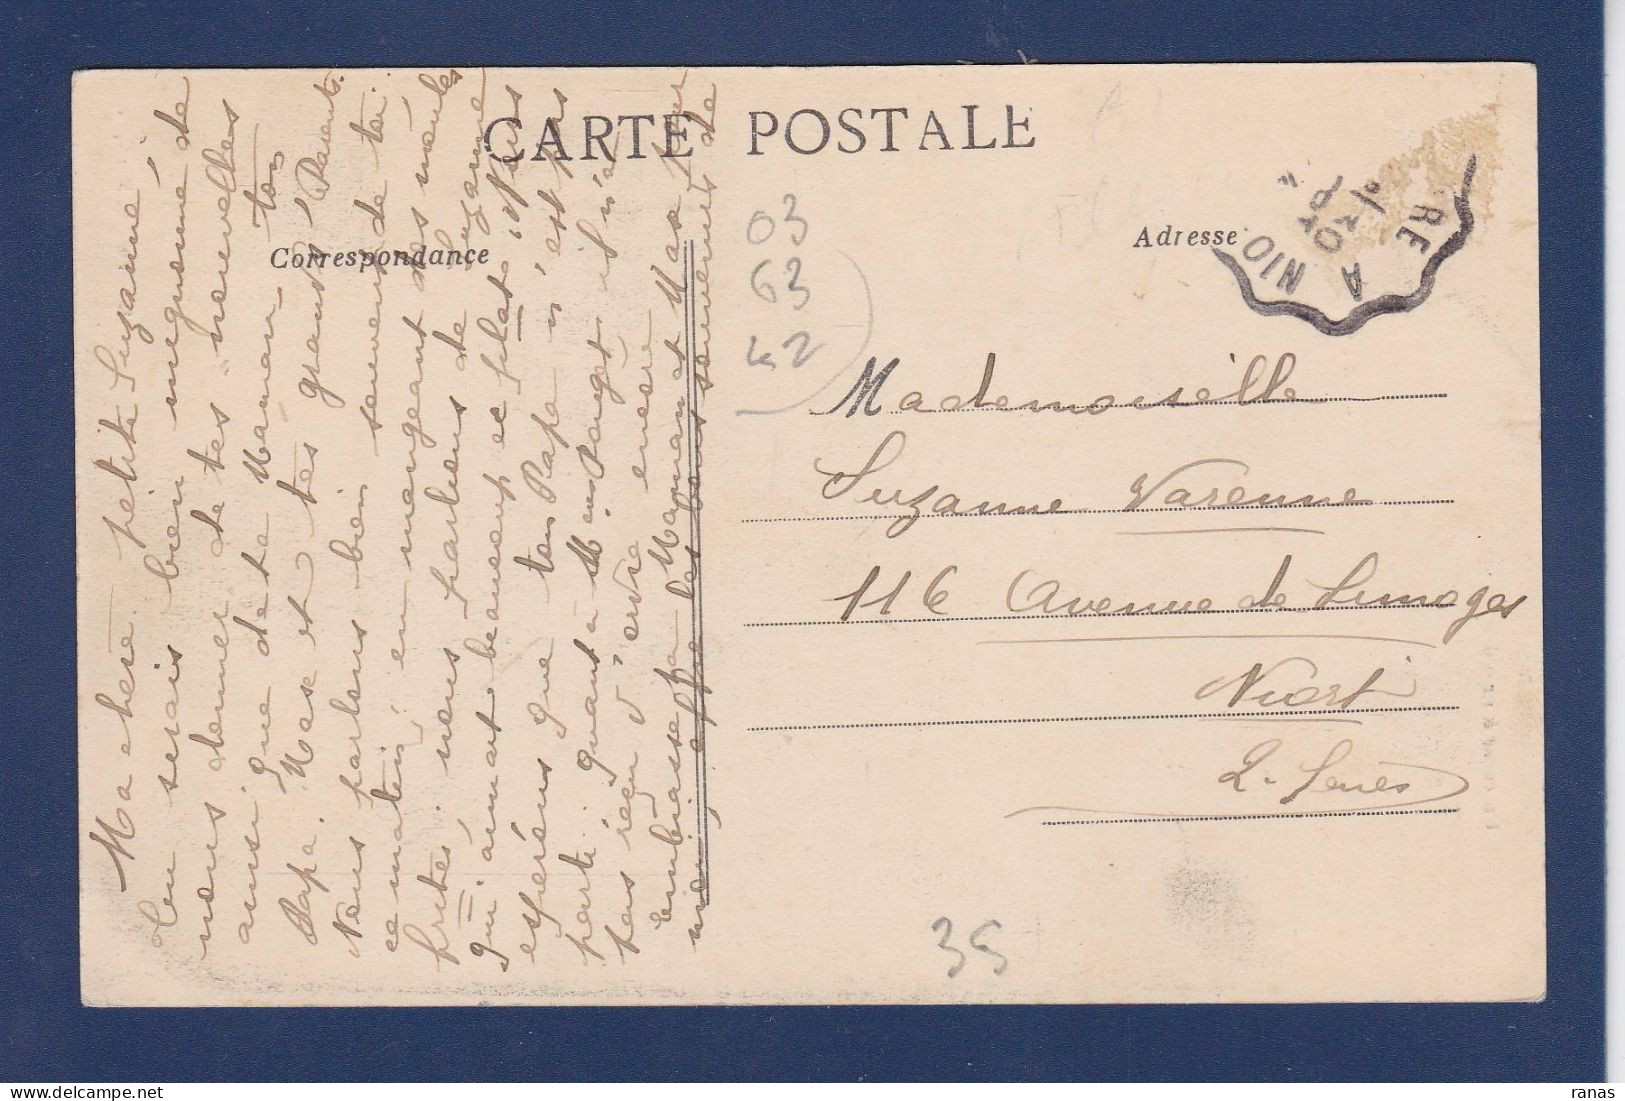 CARTE POSTALE
Correspondance
Adresse
Ma chère petite Suzanne
Tu serais bien mignonne de
nous donner de tes nouvelles
ainsi que de ta Maman, ton
Papa. Max et tes grands Parents.
Nous parlons bien souvent de toi.
ce matin en mangeant des moules
frites, nous parlions de Suzanne
qui aimait beaucoup ce plat. Nous
espérons que ton Papa n'est pas
parti. Quant à Mon
pas reçu d'ordre encore
embrasse Maman et Max pour
RE A NIO
03
63
42
Mademoiselle
Suzanne Varenne
116 Avenue de Limoges
Niort
2. Sèvres
35
ranas